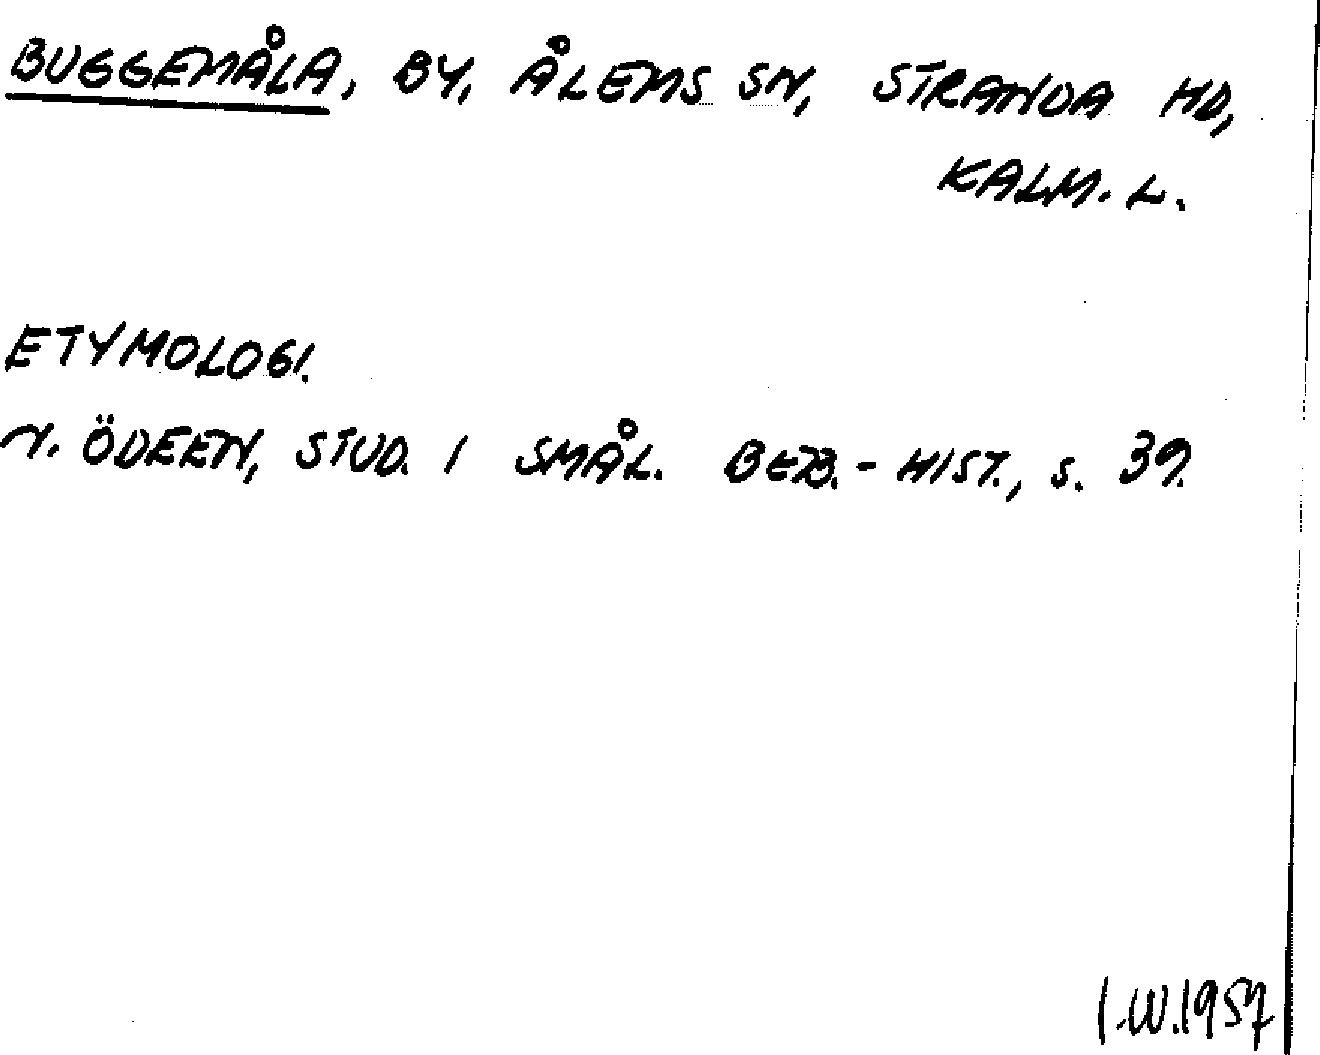 BUGGEMÅLA, BY, ÅLEMS SN, STRANDA HD,
KALM. L.
ETYMOLOGI.
N. ÖDEEN, STUD. I SMÅL. BEB.-HIST., S. 39.
I.W.1957